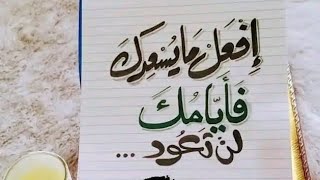 إفعل مايسعدك
فأيامك
لن تعود ...